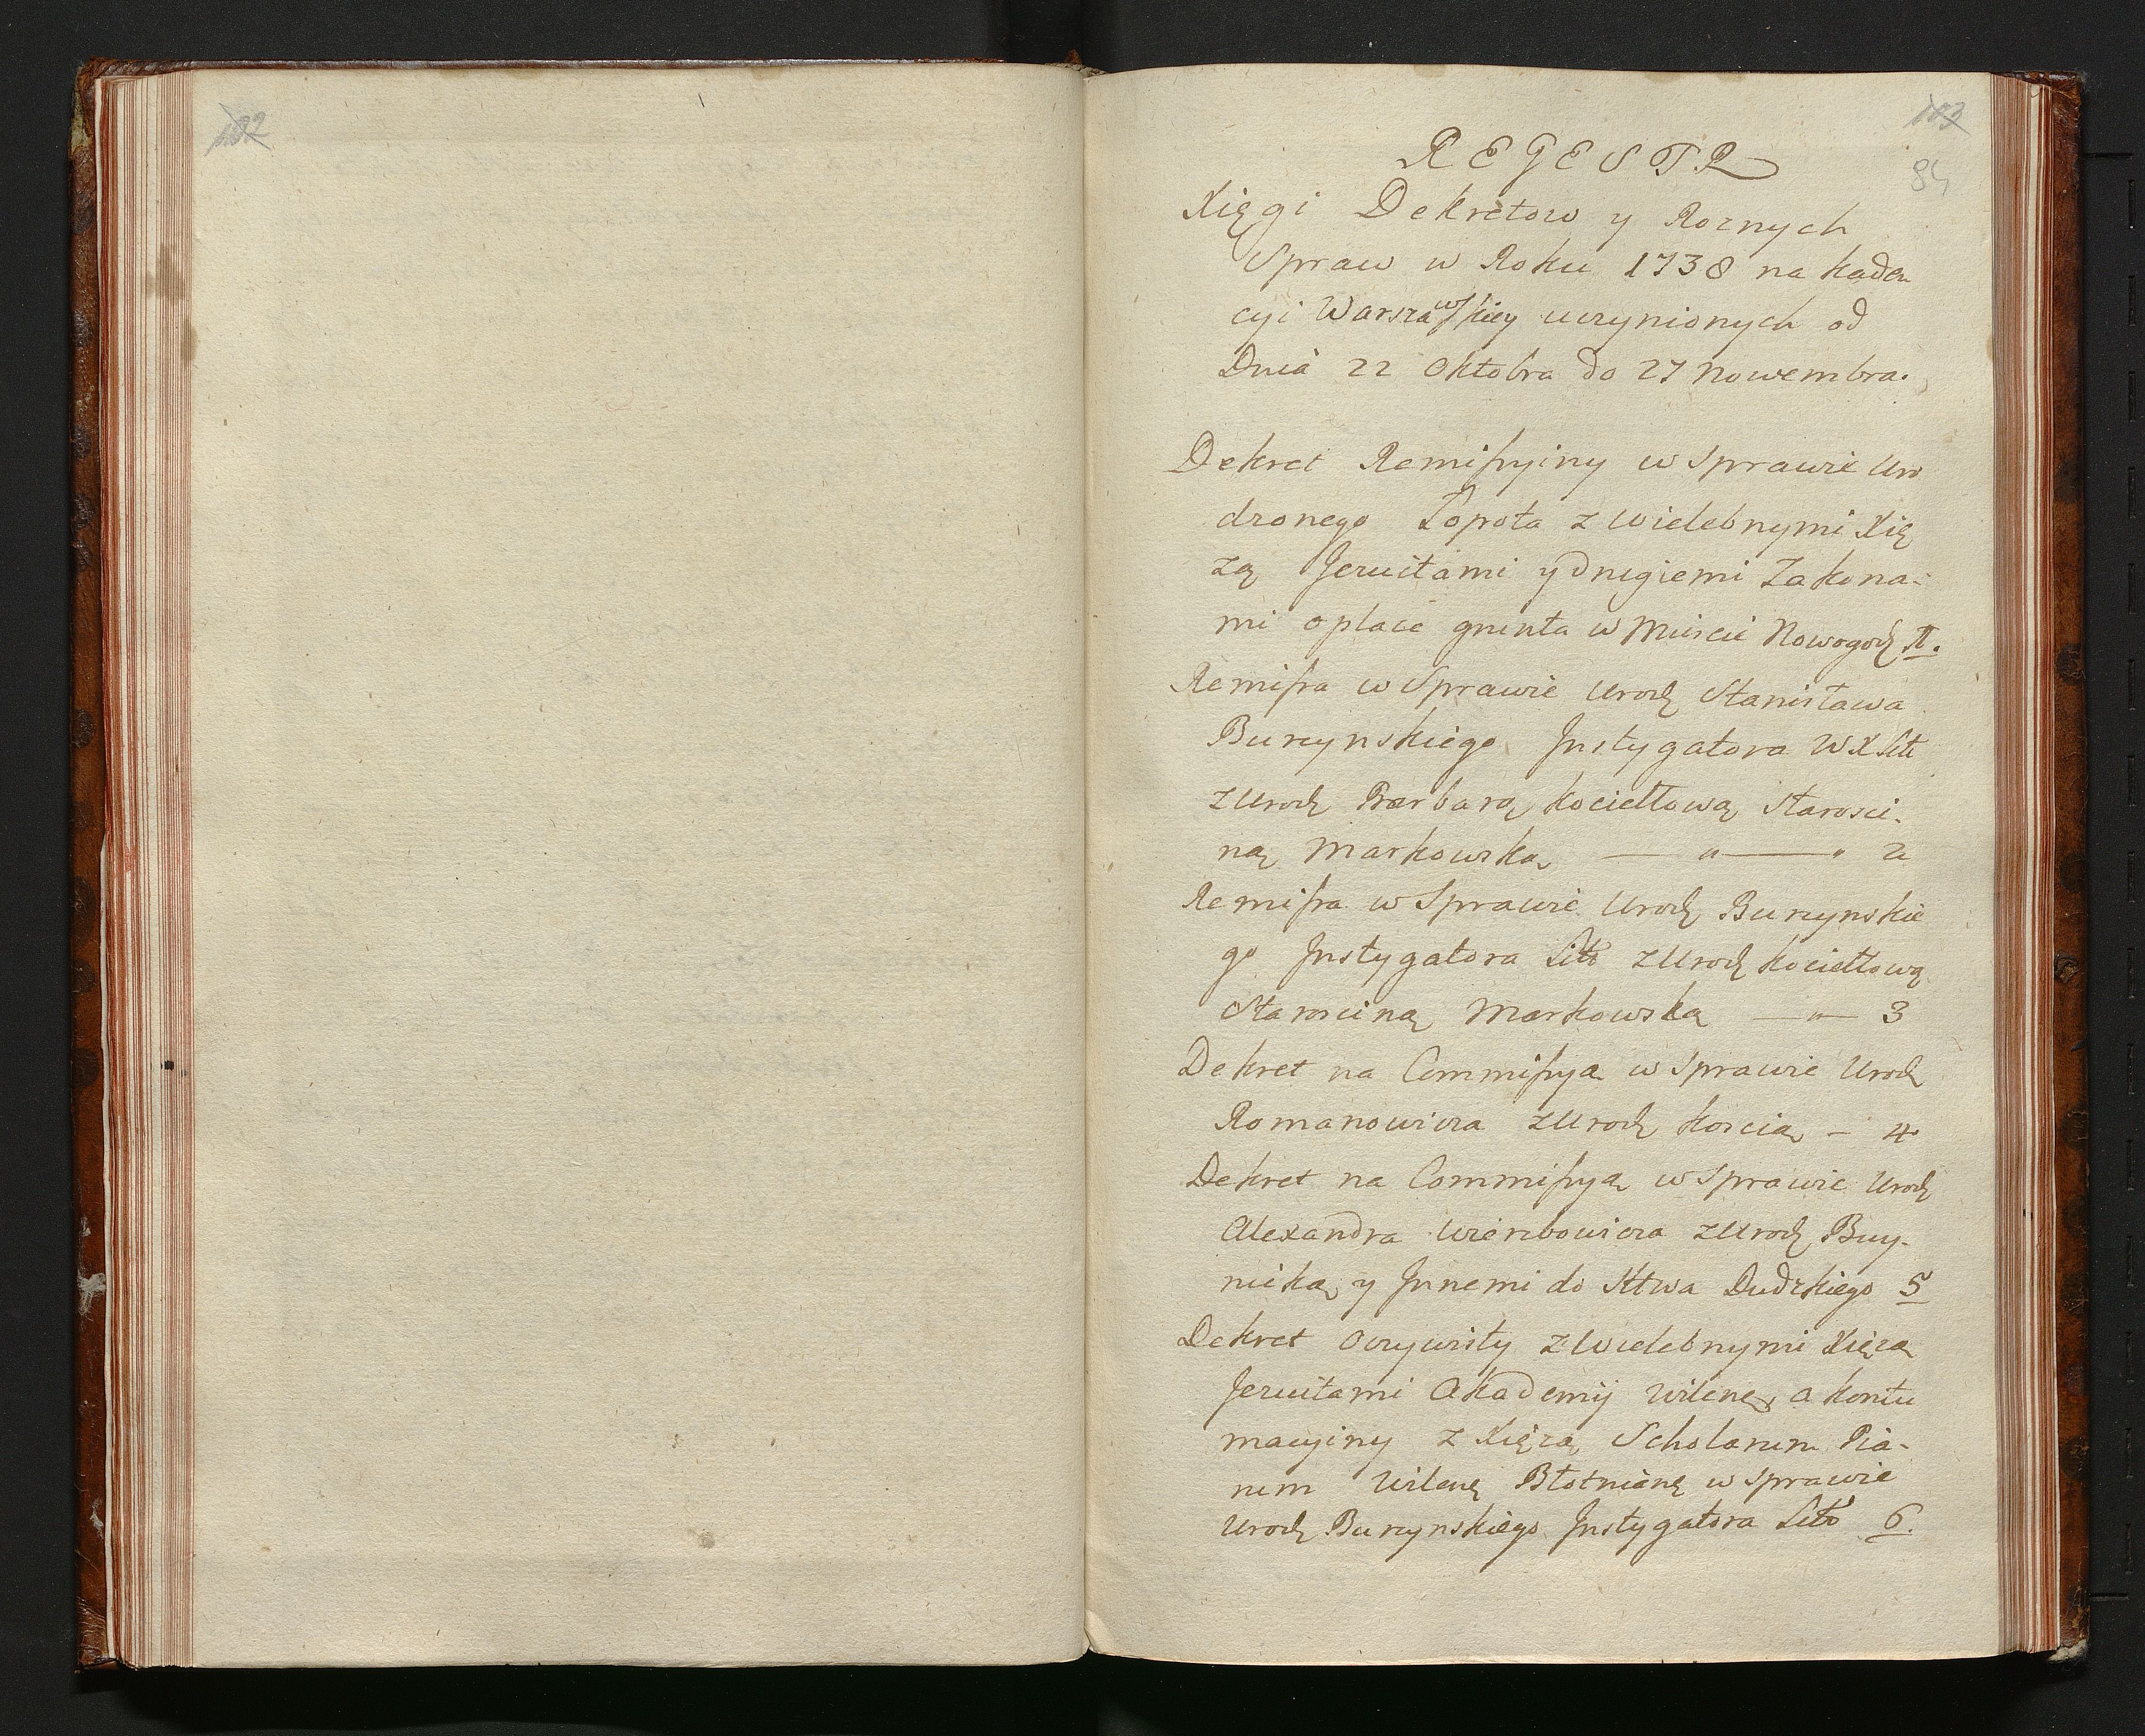 102
103
84
REGESTR
Xięgi Dekretow y Roznych
Spraw w Roku 1738 na kaden
cyi Warszawskiey uczynionych od
Dnia 22 Oktobra do 27 Nowembra.
Dekret Remissyiny w Sprawie Uro
dzonego Łopota z Wielebnymi Xię
zą Jezuitami y drugiemi Zakona-
mi o place grunta w Mieście Nowogod
Remissa w Sprawie Urodz Stanisława
Burzynskiego Instygatora W X Litt
z Urodz Barbarą Kociełłową Starosci-
ną Markowską — " — " 2
Remissa w Sprawie Urodz Burzynskie
go Instygatora Litto z Urodz Kociełłową
Starosciną Markowską — " — 3
Dekret na Commissyą w Sprawie Urodz
Romanowicza z Urodz Koscią — 4
Dekret na Commissyą w Sprawie Urodz
Alexandra Wierzbowicza z Urodz Buy-
nicką y Innemi do Sttwa Dudzkiego 5
Dekret Oczywisty z Wielebnymi Xięzą
Jezuitami Akademij Wilenę, a kontu
macyiny z Xięzą Scholarum Pia-
rum Wilenę w Sprawie
Urodz Burzynskiego Instygatora Litto 6.